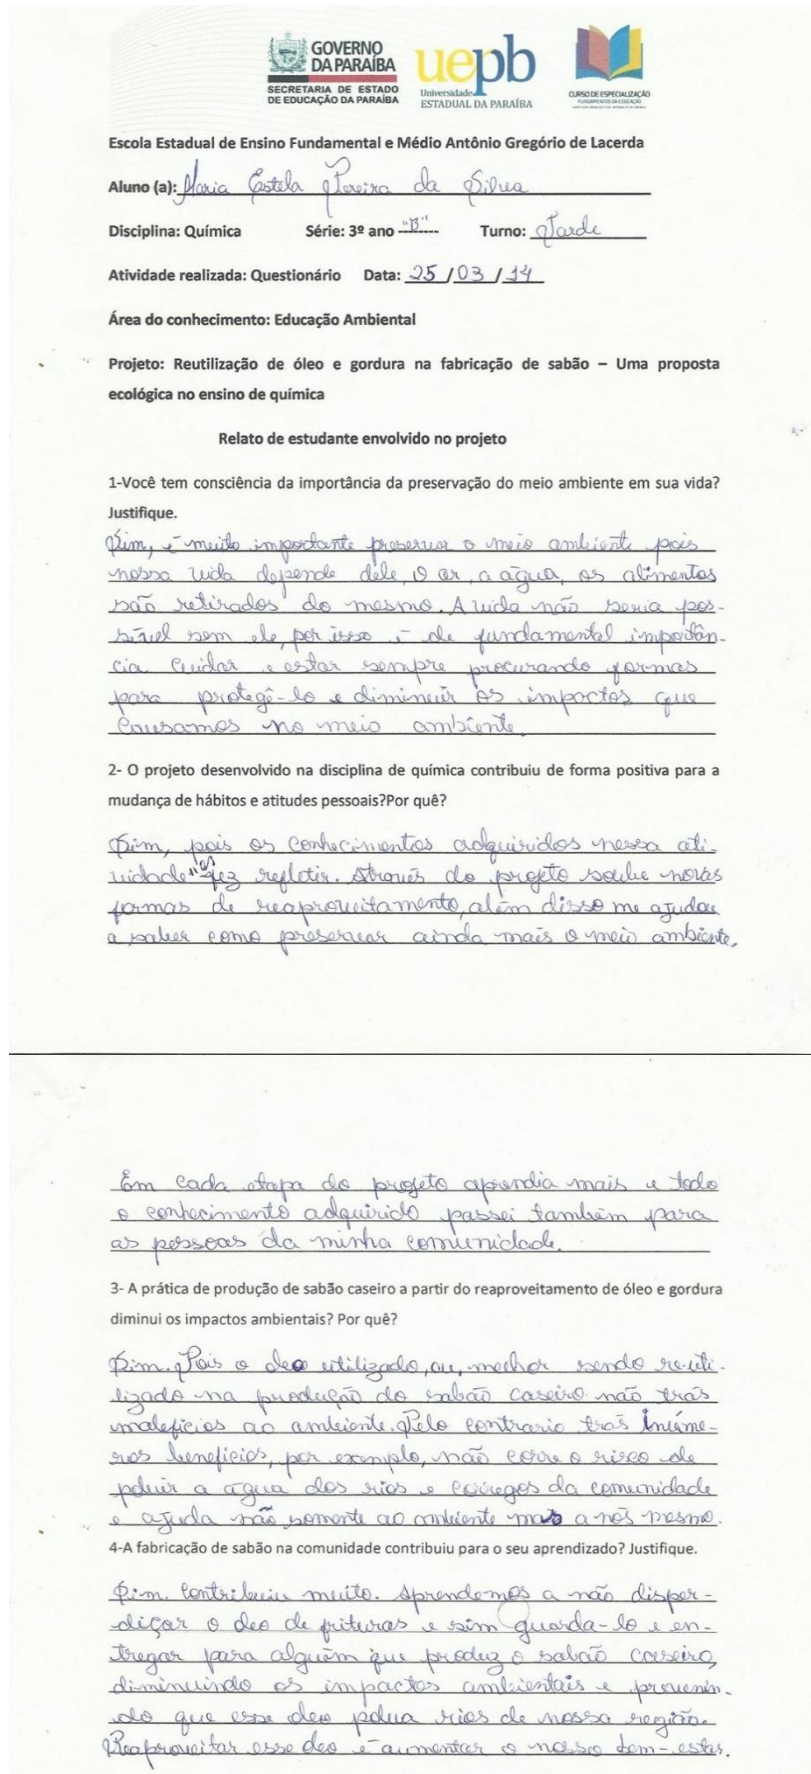 GOVERNO
DA PARAÍBA
SECRETARIA DE ESTADO
DE EDUCAÇÃO DA PARAÍBA
uepb
Universidade
ESTADUAL DA PARAÍBA
CURSO DE ESPECIALIZAÇÃO
FUNDAMENTOS DA EDUCAÇÃO
Escola Estadual de Ensino Fundamental e Médio Antônio Gregório de Lacerda
Aluno (a): Maria Estela Pereira da Silva
Disciplina: Química Série: 3º ano "B" Turno: Tarde
Atividade realizada: Questionário Data: 25 / 03 / 14
Área do conhecimento: Educação Ambiental
Projeto: Reutilização de óleo e gordura na fabricação de sabão – Uma proposta
ecológica no ensino de química
Relato de estudante envolvido no projeto
1-Você tem consciência da importância da preservação do meio ambiente em sua vida?
Justifique.
Sim, é muito importante preservar o meio ambiente pois
nossa vida depende dele, o ar, a água, os alimentos
são retirados do mesmo. A vida não seria pos-
sível sem ele, por isso é de fundamental importân-
cia cuidar e estar sempre procurando formas
para protegê-lo e diminuir os impactos que
causamos no meio ambiente.
2- O projeto desenvolvido na disciplina de química contribuiu de forma positiva para a
mudança de hábitos e atitudes pessoais?Por quê?
Sim, pois os conhecimentos adquiridos nessa ati-
vidade nos fez refletir. Através do projeto soube novas
formas de reaproveitamento, além disso me ajudou
a saber como preservar ainda mais o meio ambiente.
Em cada etapa do projeto aprendia mais e todo
o conhecimento adquirido passei também para
as pessoas da minha comunidade.
3- A prática de produção de sabão caseiro a partir do reaproveitamento de óleo e gordura
diminui os impactos ambientais? Por quê?
Sim. Pois o óleo utilizado, ou, melhor sendo reuti-
lizado na produção do sabão caseiro não trás
maleficios ao ambiente. Pelo contrario trás inúme-
ros beneficios, por exemplo, não corre o risco de
poluir a água dos rios e corregos da comunidade
e ajuda não somente ao ambiente mas a nós mesmo.
4-A fabricação de sabão na comunidade contribuiu para o seu aprendizado? Justifique.
Sim. Contribuiu muito. Aprendemos a não disper-
diçar o óleo de frituras e sim guarda-lo e en-
tregar para alguém que produz o sabão caseiro,
diminuindo os impactos ambientais e prevenin-
do que esse óleo polua rios de nossa região.
Reaproveitar esse óleo é aumentar o nosso bem-estar.